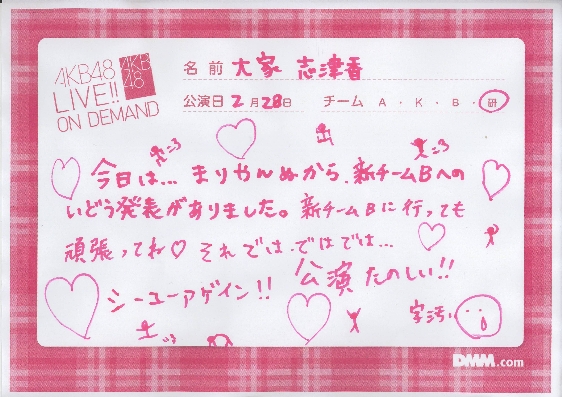 AKB48
LIVE!!
ON DEMAND
AKB
48
名前 大家 志津香
公演日 2月28日 チーム A・K・B・研
今日は… まりやんぬから、新チームBへの
いどう発表がありました。新チームBに行っても
頑張ってね♡ それでは、ではでは…
シーユーアゲイン!! 公演たのしい!!
字汚い
DMM.com